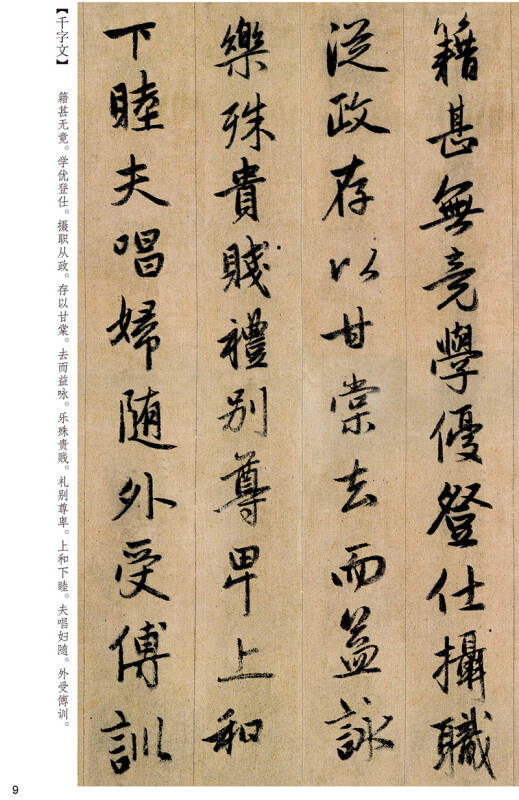 籍甚無竟學優登仕攝職
從政存以甘棠去而益詠
樂殊貴賤禮別尊卑上和
下睦夫唱婦随外受傅訓
【千字文】
籍甚无竟。学优登仕。摄职从政。存以甘棠。去而益咏。乐殊贵贱。礼别尊卑。上和下睦。夫唱妇随。外受傅训。
9